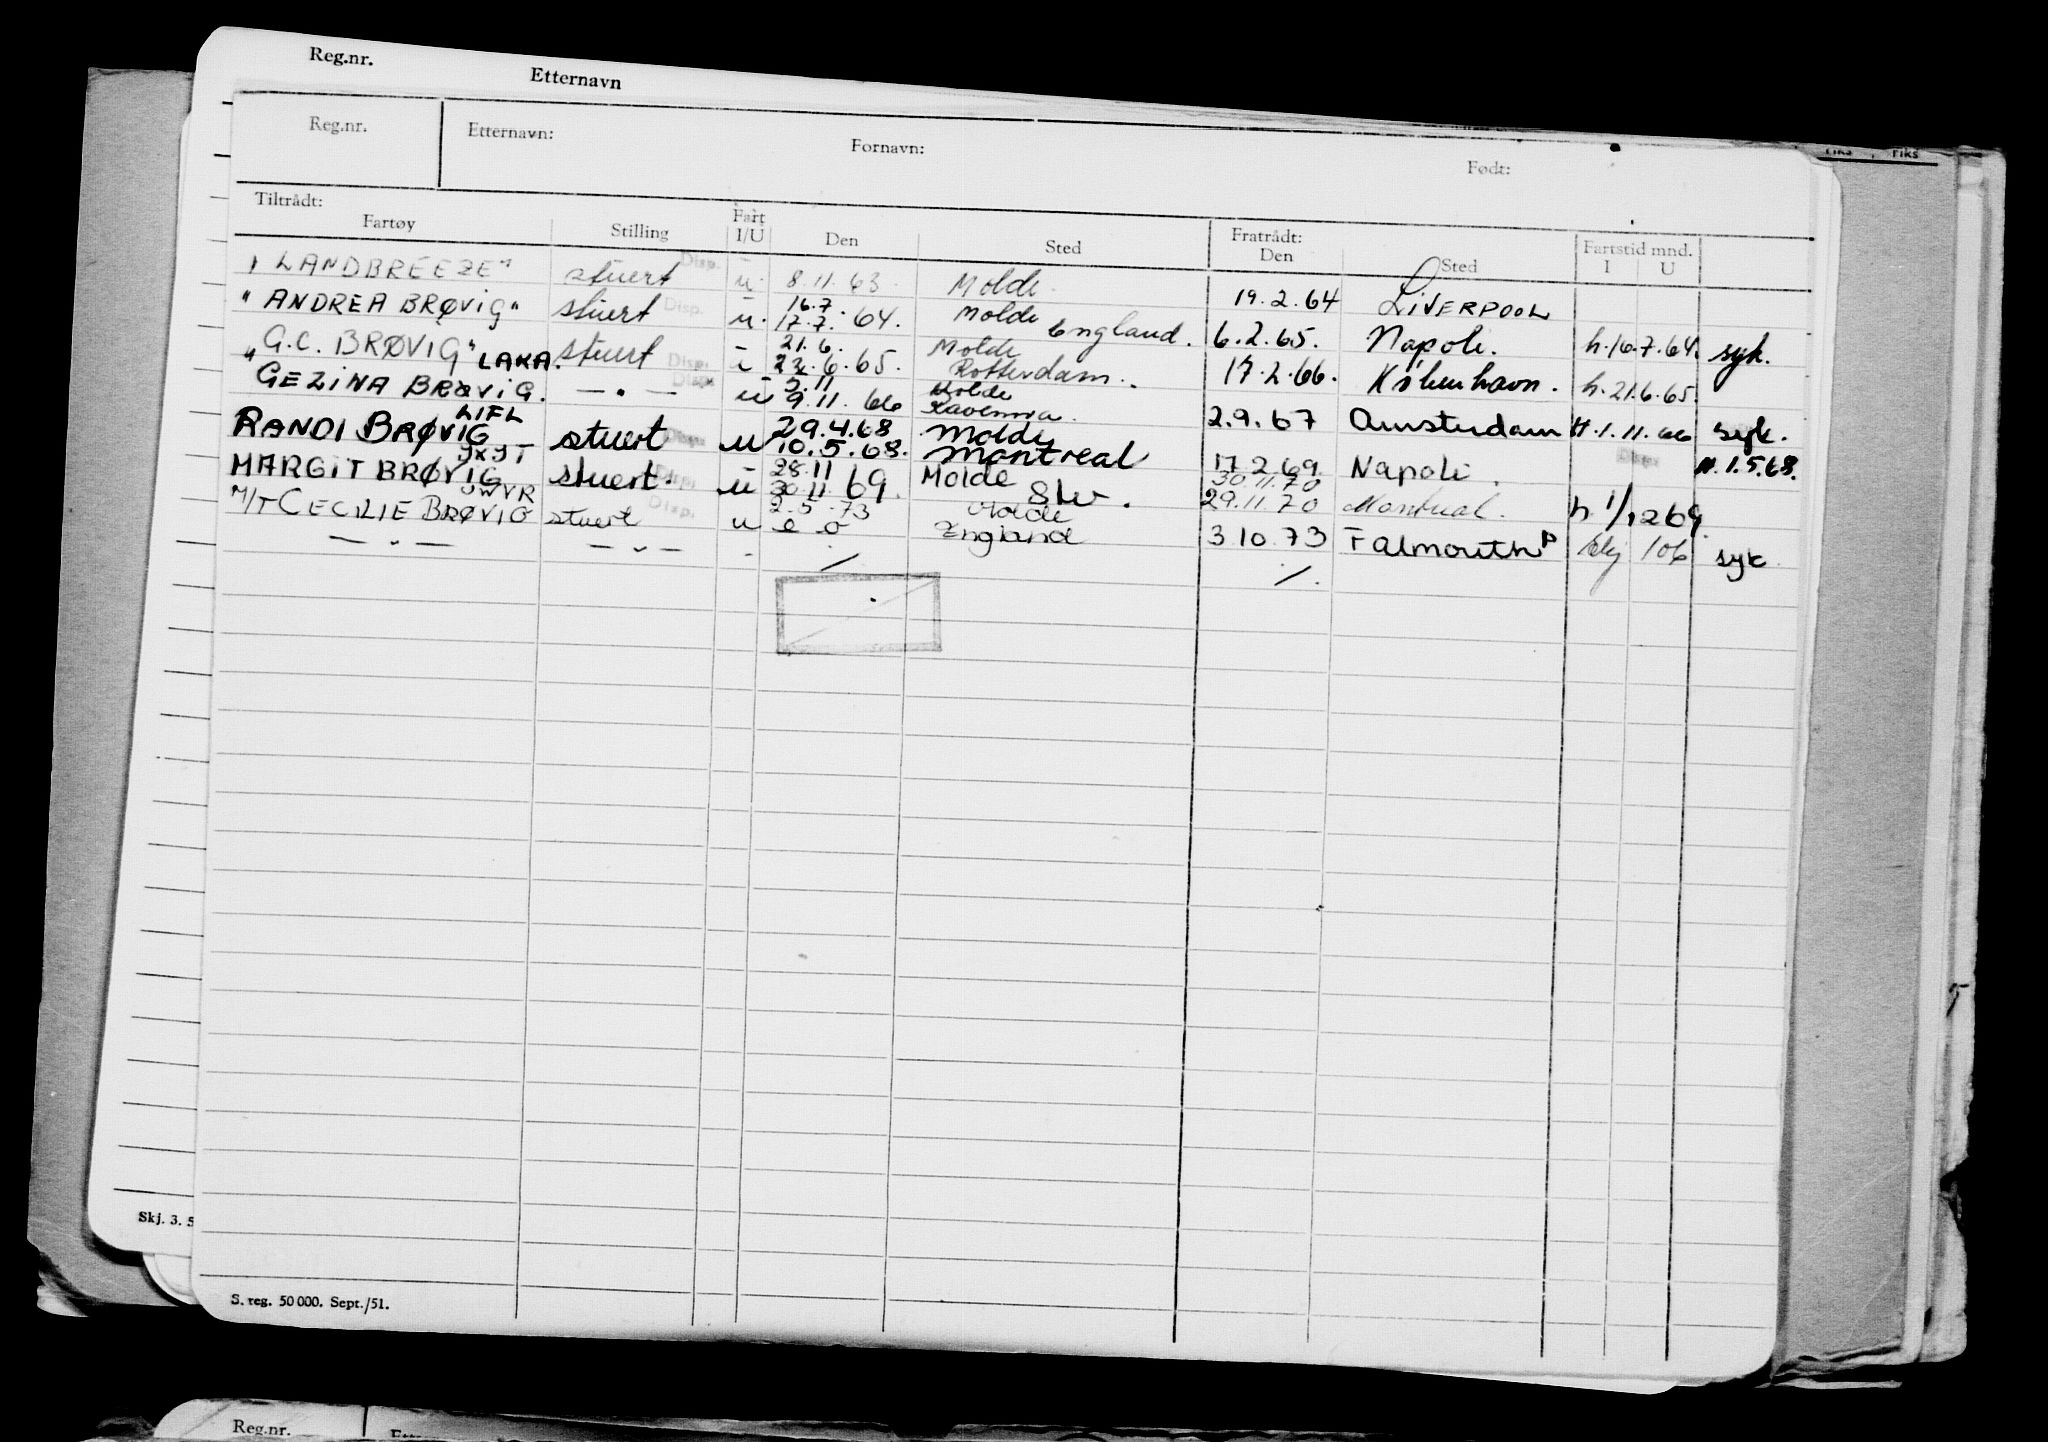 Reg.nr. Etternavn
Reg.nr. Etternavn: Fornavn: Født:
Tiltrådt: Fratrådt:
Fartøy Stilling Fart I/U Den Sted Den Sted Fartstid mnd. I U
"LANDBREEZE" stuert Disp. u 8.11.63 Molde 19.2.64 LIVERPOOL
"ANDREA BRØVIG" stuert Disp. u 16.7. 17.7.64. Molde England. 6.2.65. Napoli. h.16.7.64. syk.
"G.C. BRØVIG" LAKA. stuert Disp. u 21.6. 22.6.65. Molde Rotterdam. 17.2.66. København. h.21.6.65.
GEZINA BRØVIG. — " — Disp. u 9.11.66 Molde Ravenna. 2.9.67 Amsterdam H.1.11.66 syk.
RANDI BRØVIG LIFL stuert u 29.4.68 10.5.68. Molde Montreal 17.2.69. Napoli. H.1.5.68.
MARGIT BRØVIG stuert. Disp. u 28.11 30.11.69. Molde 30.11.70 29.11.70 Montreal. h. 1/12 69.
M/T CECILIE BRØVIG stuert Disp. u 2.5.73 Molde England 3 10.73 Falmouth 106 syk
— " — — " —
S. reg. 50 000. Sept./51.
Skj. 3. 5
Reg.nr.